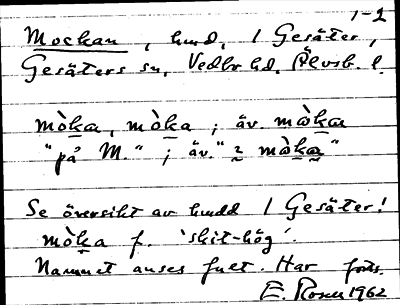 1-2
Mockan, hmd, 1 Gesäter,
Gesäters sn, Vedbo hd, Älvsb. l.
mòka, mòka ; äv. màka
"på M." ; äv. " màka"
Se översikt av hmdd 1 Gesäter!
mòka f. 'skit-hög'.
Namnet anses fult. Har forts.
E. Rosen 1962